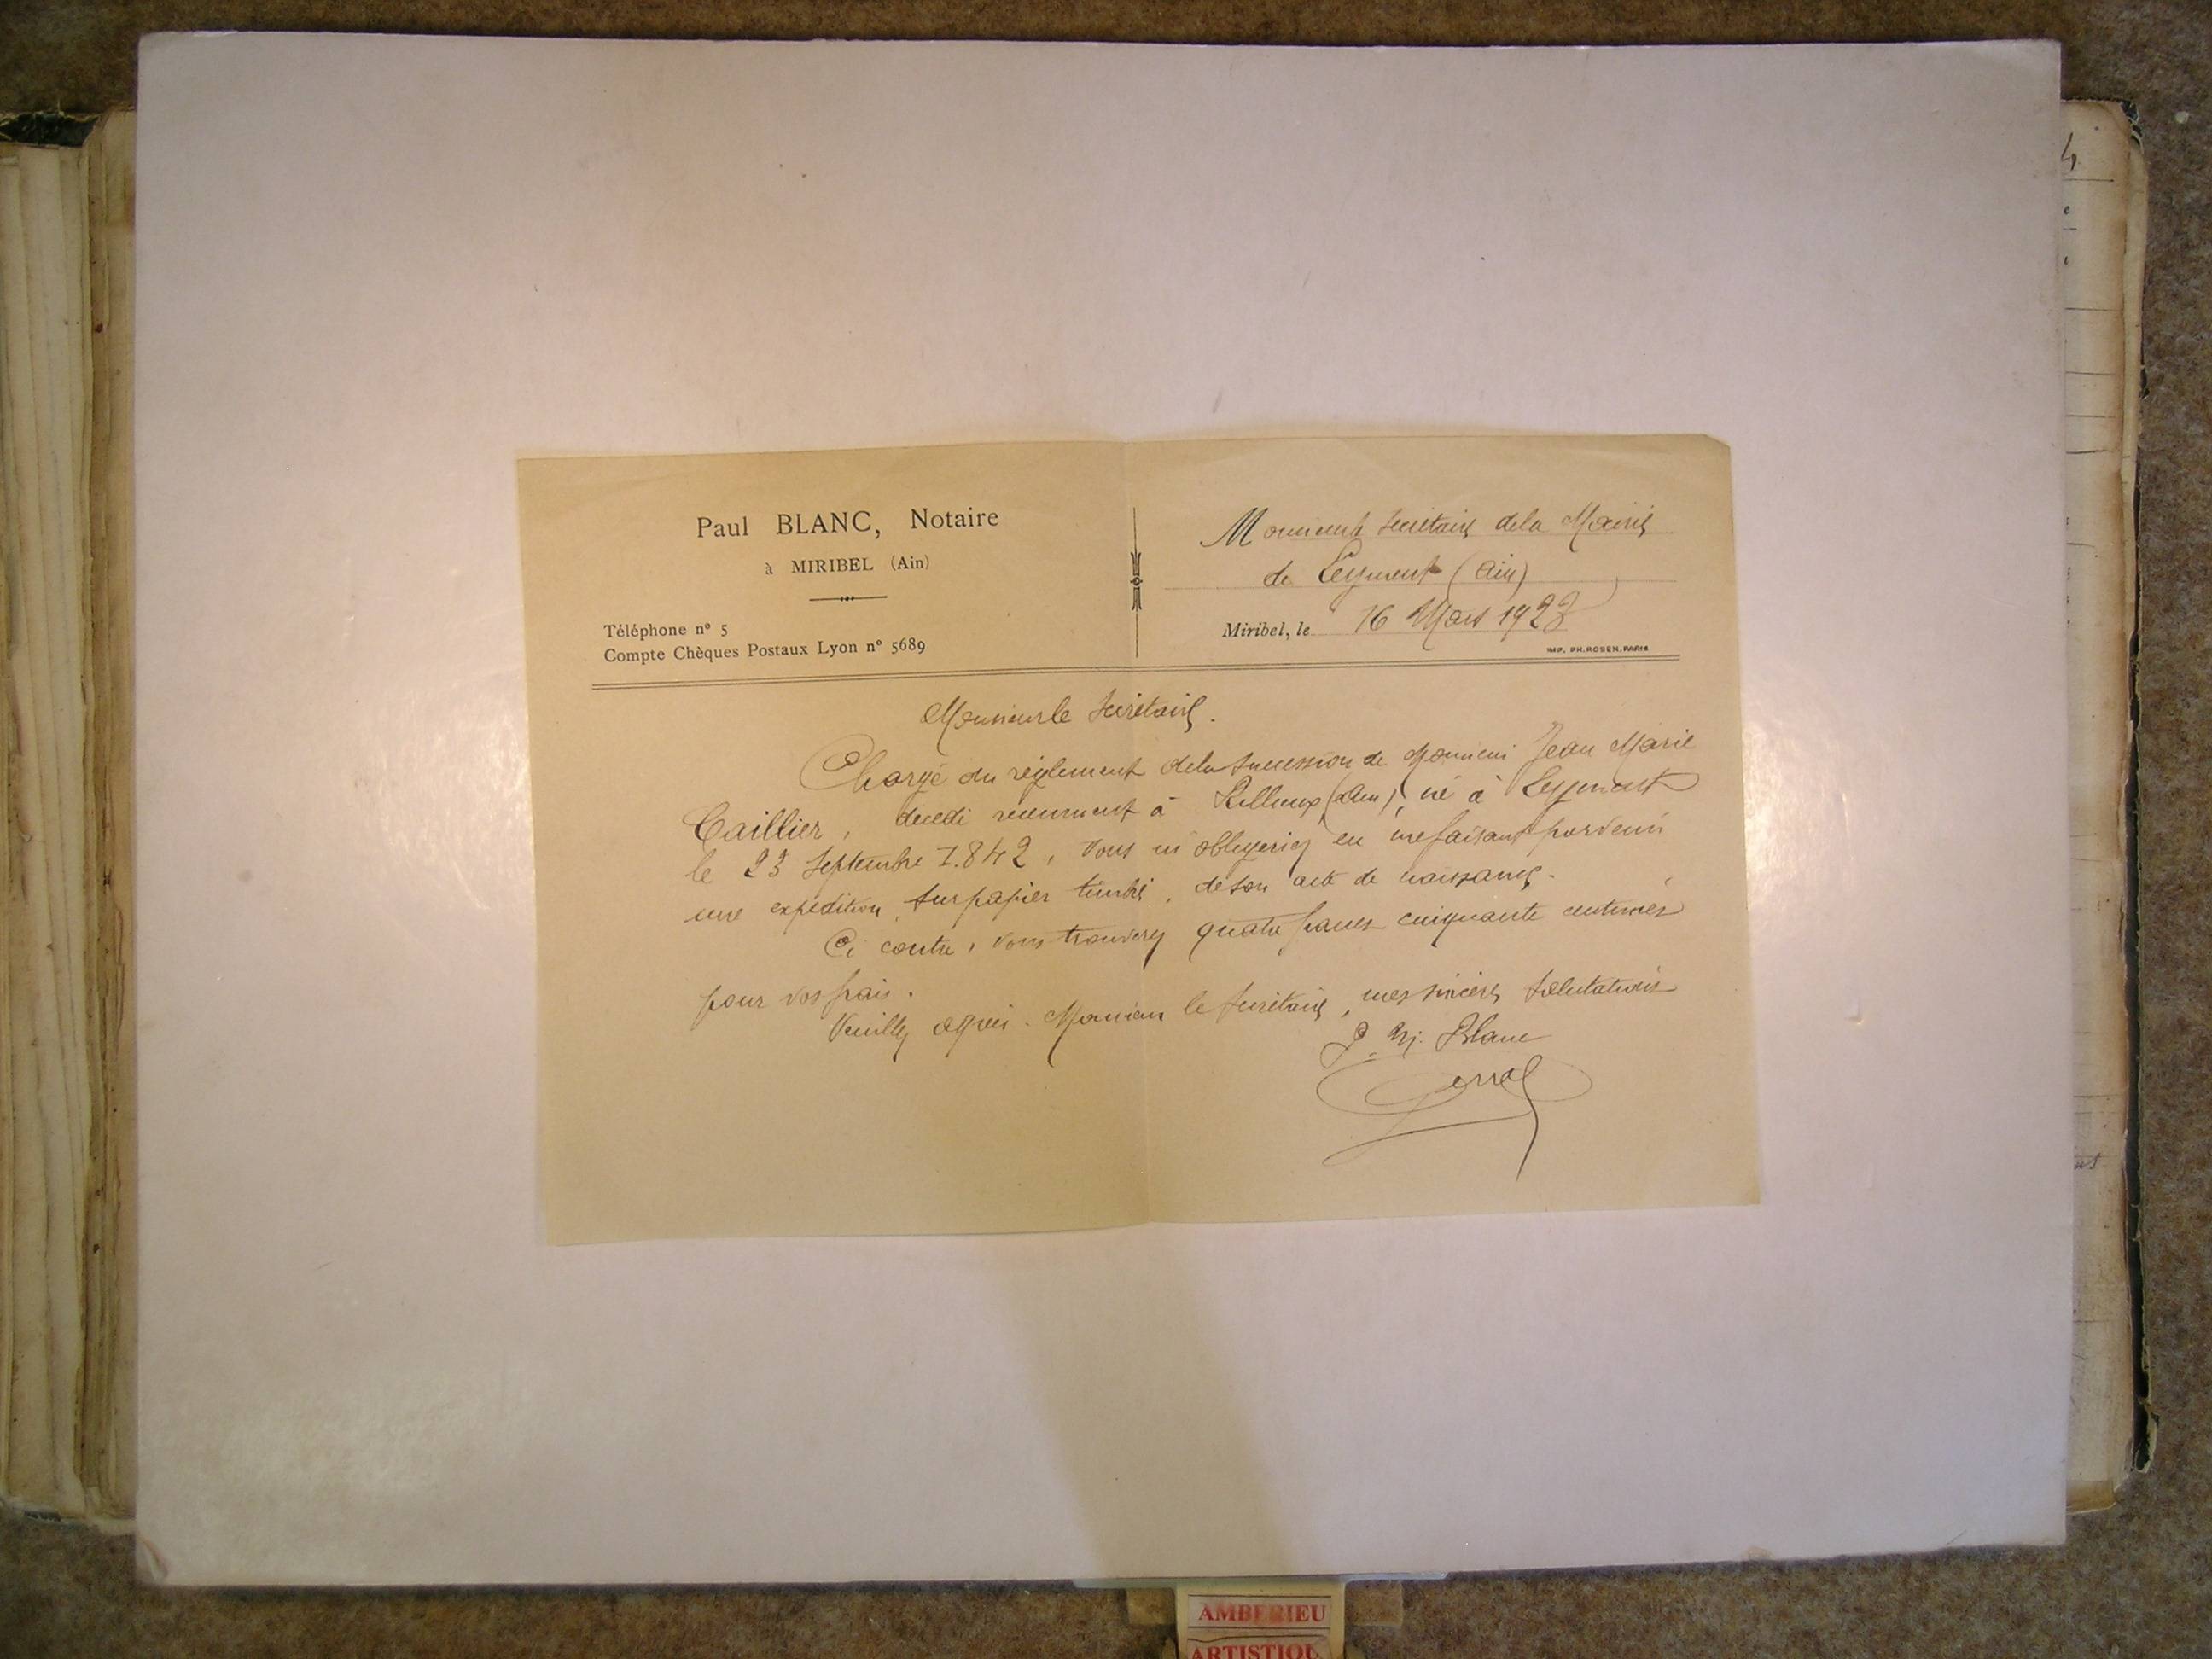 Paul BLANC, Notaire
à MIRIBEL (Ain)
Téléphone nº 5
Compte Chèques Postaux Lyon nº 5689
Monsieur le Secrétaire de la Mairie
de Leyment (Ain)
Miribel, le 16 Mars 1923
IMP. PH. ROSEN. PARIS
Monsieur le Secrétaire.
Chargé du règlement de la succession de Monsieur Jean Marie
Caillier, décédé récemment à Rillieux (Ain), né à Leyment
le 23 Septembre 1.842, Vous m'obligeriez en me faisant parvenir
une expédition, sur papier timbré, de son acte de naissance.
Ci contre, vous trouverez quatre francs cinquante centimes
pour vos frais.
Veuillez agréer. Monsieur le Secrétaire, mes sincères salutations
P. Mj. Blanc
AMBERIEU
ARTISTIQU